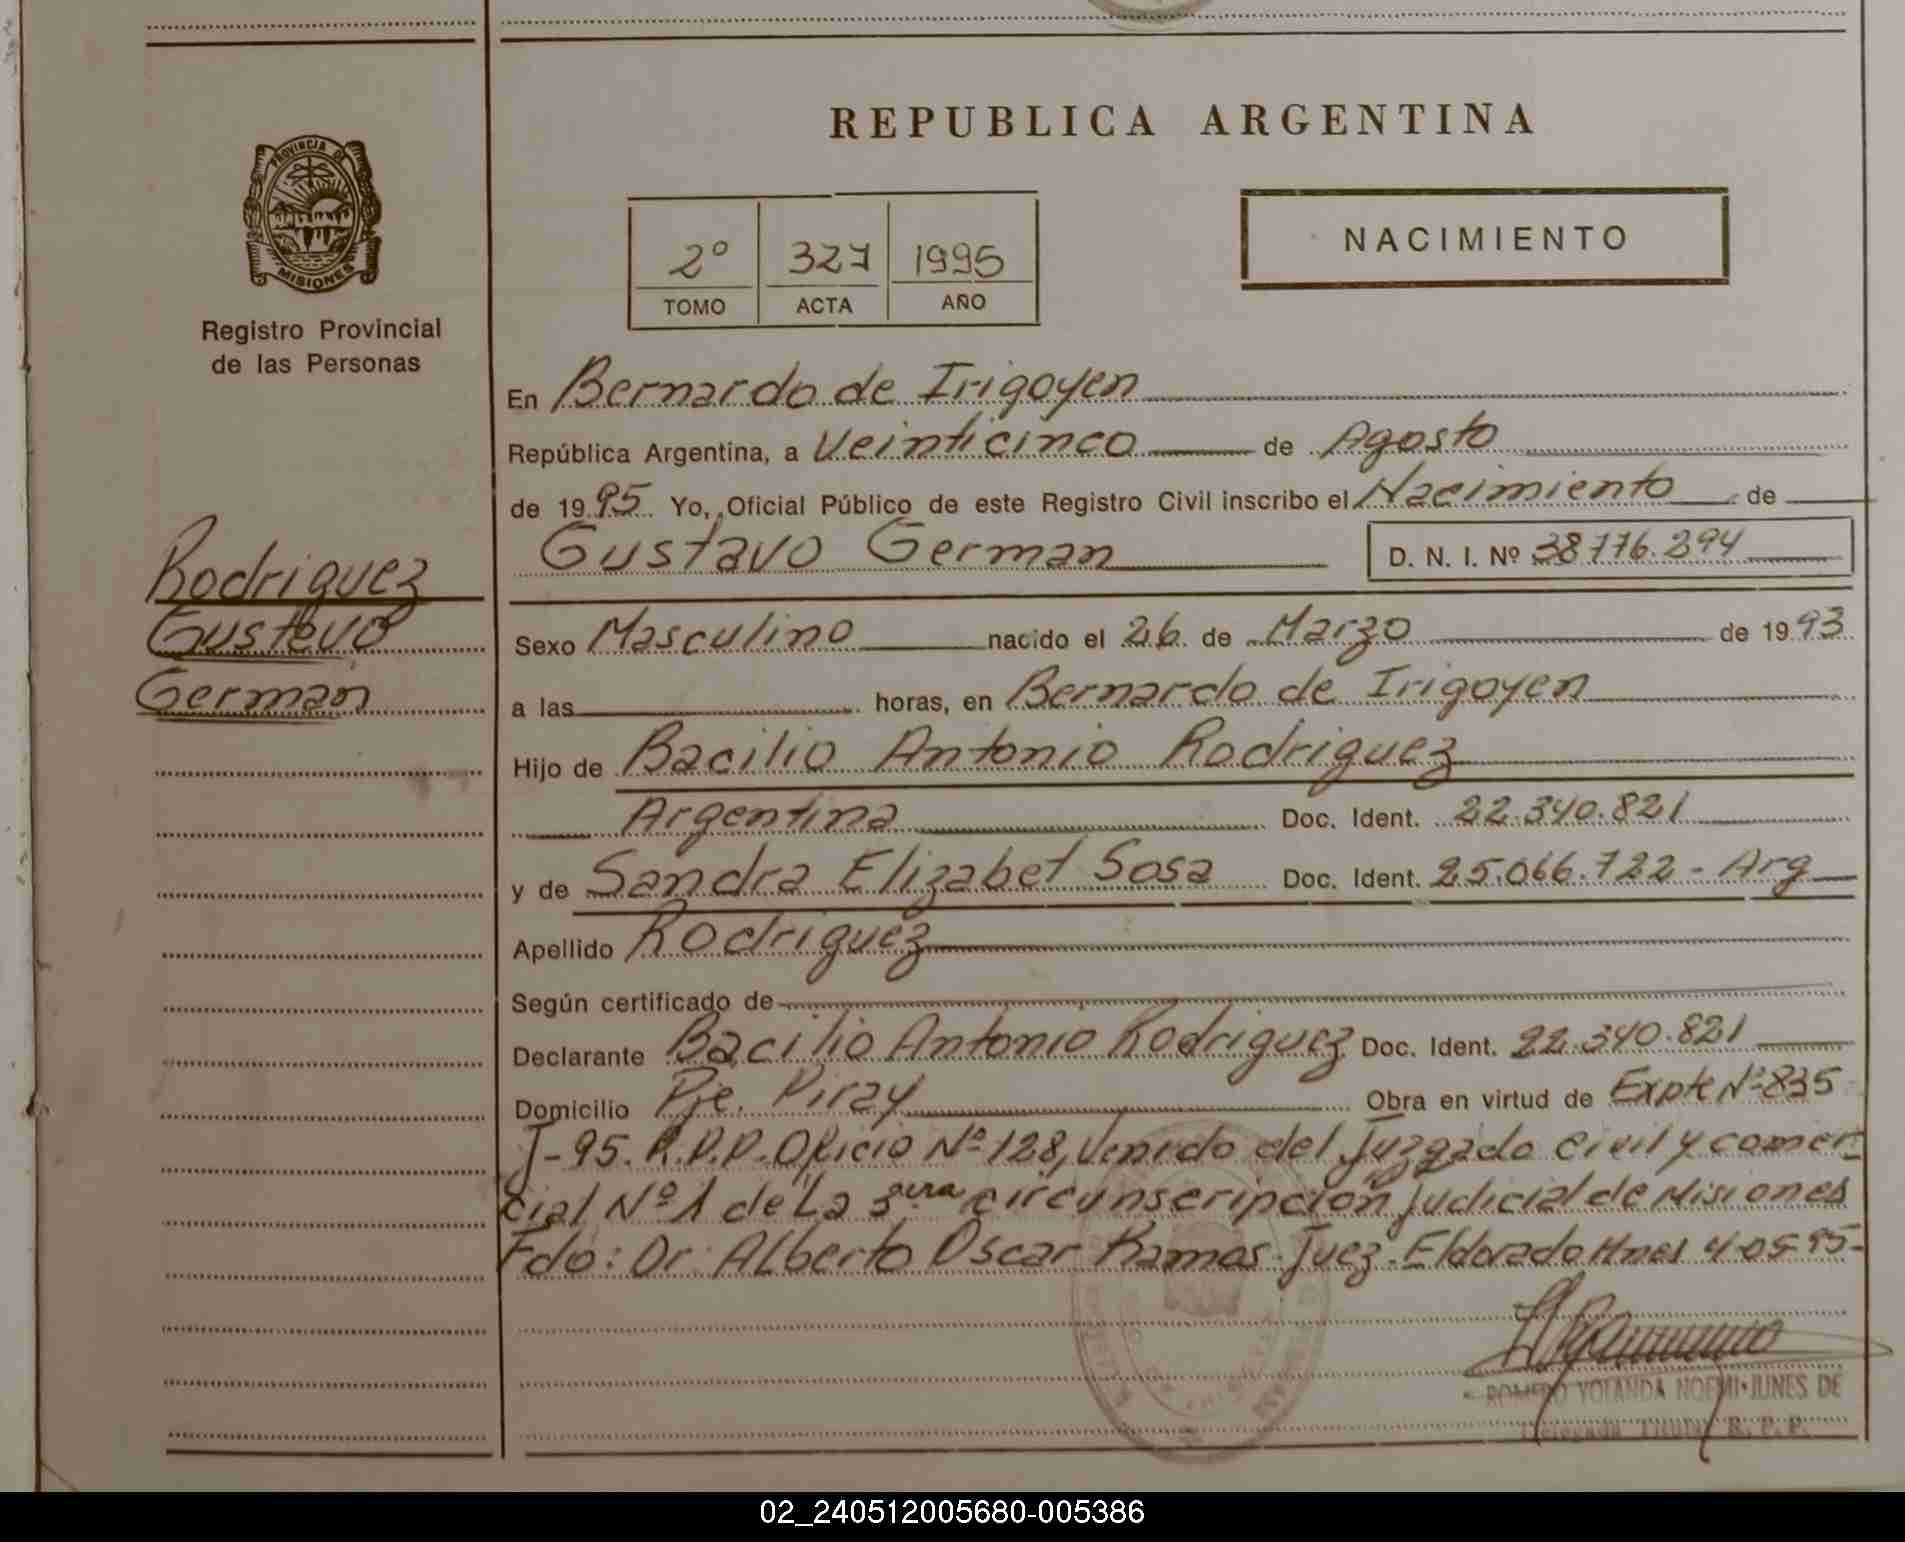 REPUBLICA ARGENTINA
PROVINCIA DE
MISIONES
Registro Provincial
de las Personas
2º 327 1995
TOMO ACTA AÑO
NACIMIENTO
En Bernardo de Irigoyen
República Argentina, a Veinticinco de Agosto
de 1995 Yo, Oficial Público de este Registro Civil inscribo el Nacimiento de
Gustavo German D. N. I. Nº 38776.294
Rodriguez
Gustavo
German
Sexo Masculino nacido el 26 de Marzo de 1993
a las horas, en Bernardo de Irigoyen
Hijo de Bacilio Antonio Rodriguez
Argentina Doc. Ident. 22.340.821
y de Sandra Elizabet Sosa Doc. Ident. 25.066.722 - Arg
Apellido Rodriguez
Según certificado de
Declarante Bacilio Antonio Rodriguez Doc. Ident. 22.340.821
Domicilio Pje. Piray Obra en virtud de Expte Nº 835
J-95. R.P.P. Oficio Nº 128, Venido del Juzgado Civil y comer-
cial Nº 1 de La 3era circunscripcion Judicial de Misiones
Fdo: Dr. Alberto Oscar Ramos. Juez. Eldorado Mnes 4-05-95-
ROMERO YOLANDA NOEMI JUNES DE
Delegada Titular R. P. P.
02_240512005680-005386